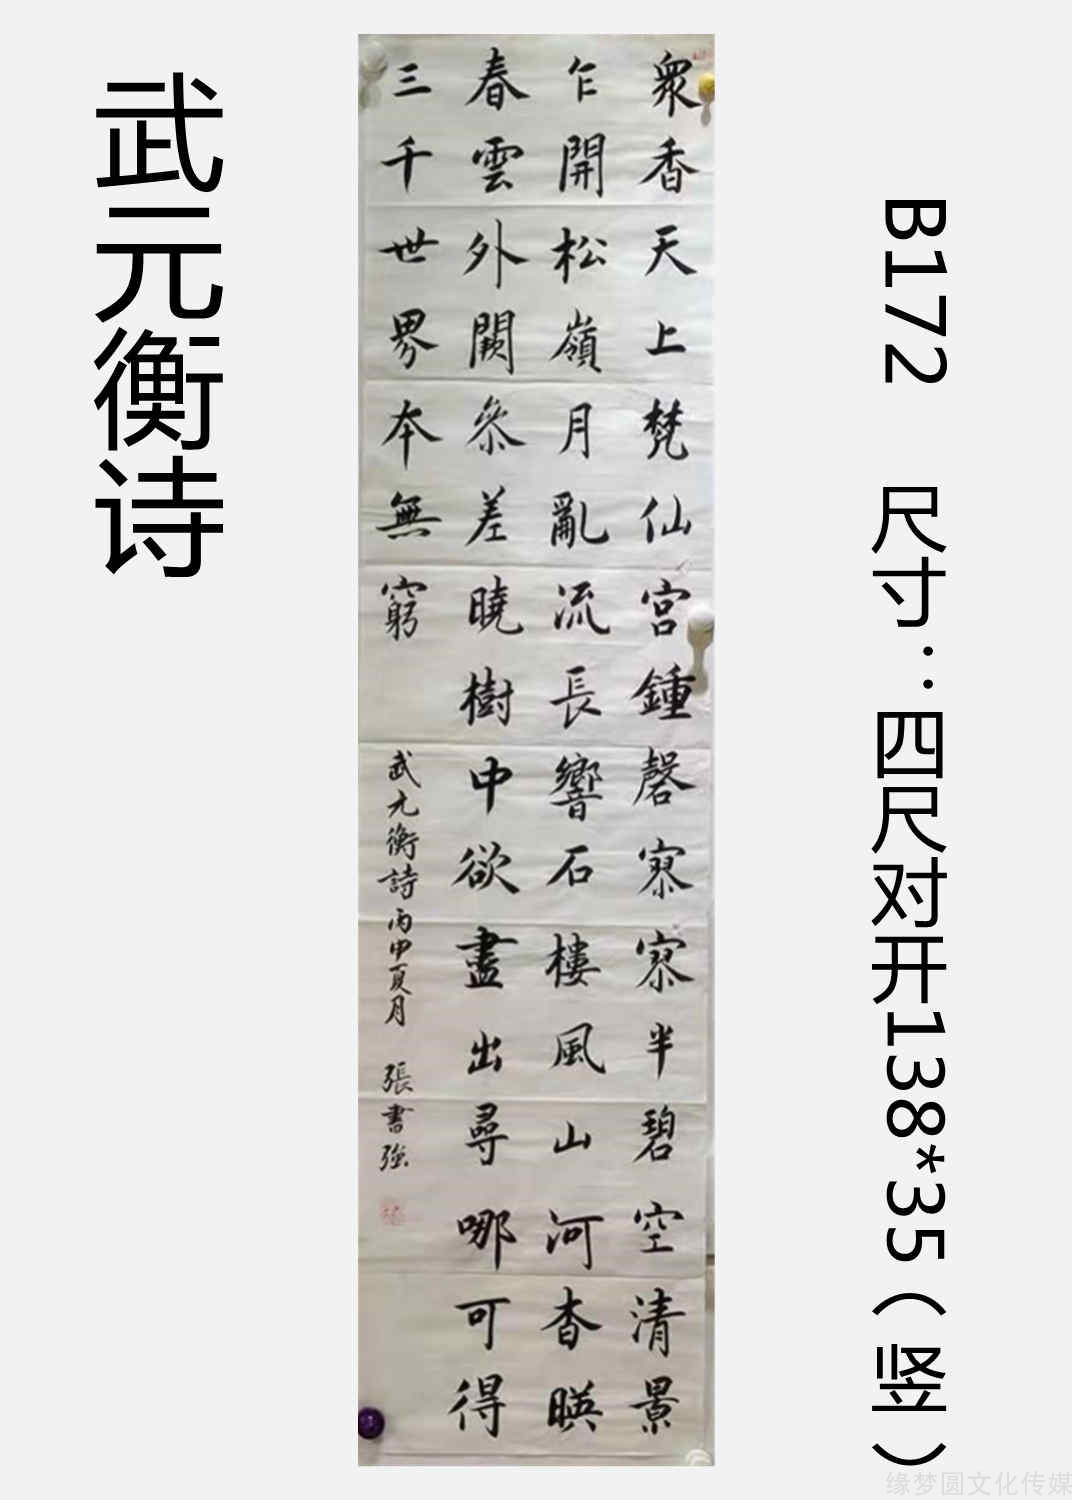 武元衡诗
衆香天上梵仙宮鍾磬寮寮半碧空清景
乍開松嶺月亂流長響石樓風山河杳暎
春雲外闕叅差曉樹中欲盡出尋哪可得
三千世界本無窮
武元衡詩丙申夏月 張書強
B172 尺寸：四尺对开138*35（竖）
缘梦圆文化传媒